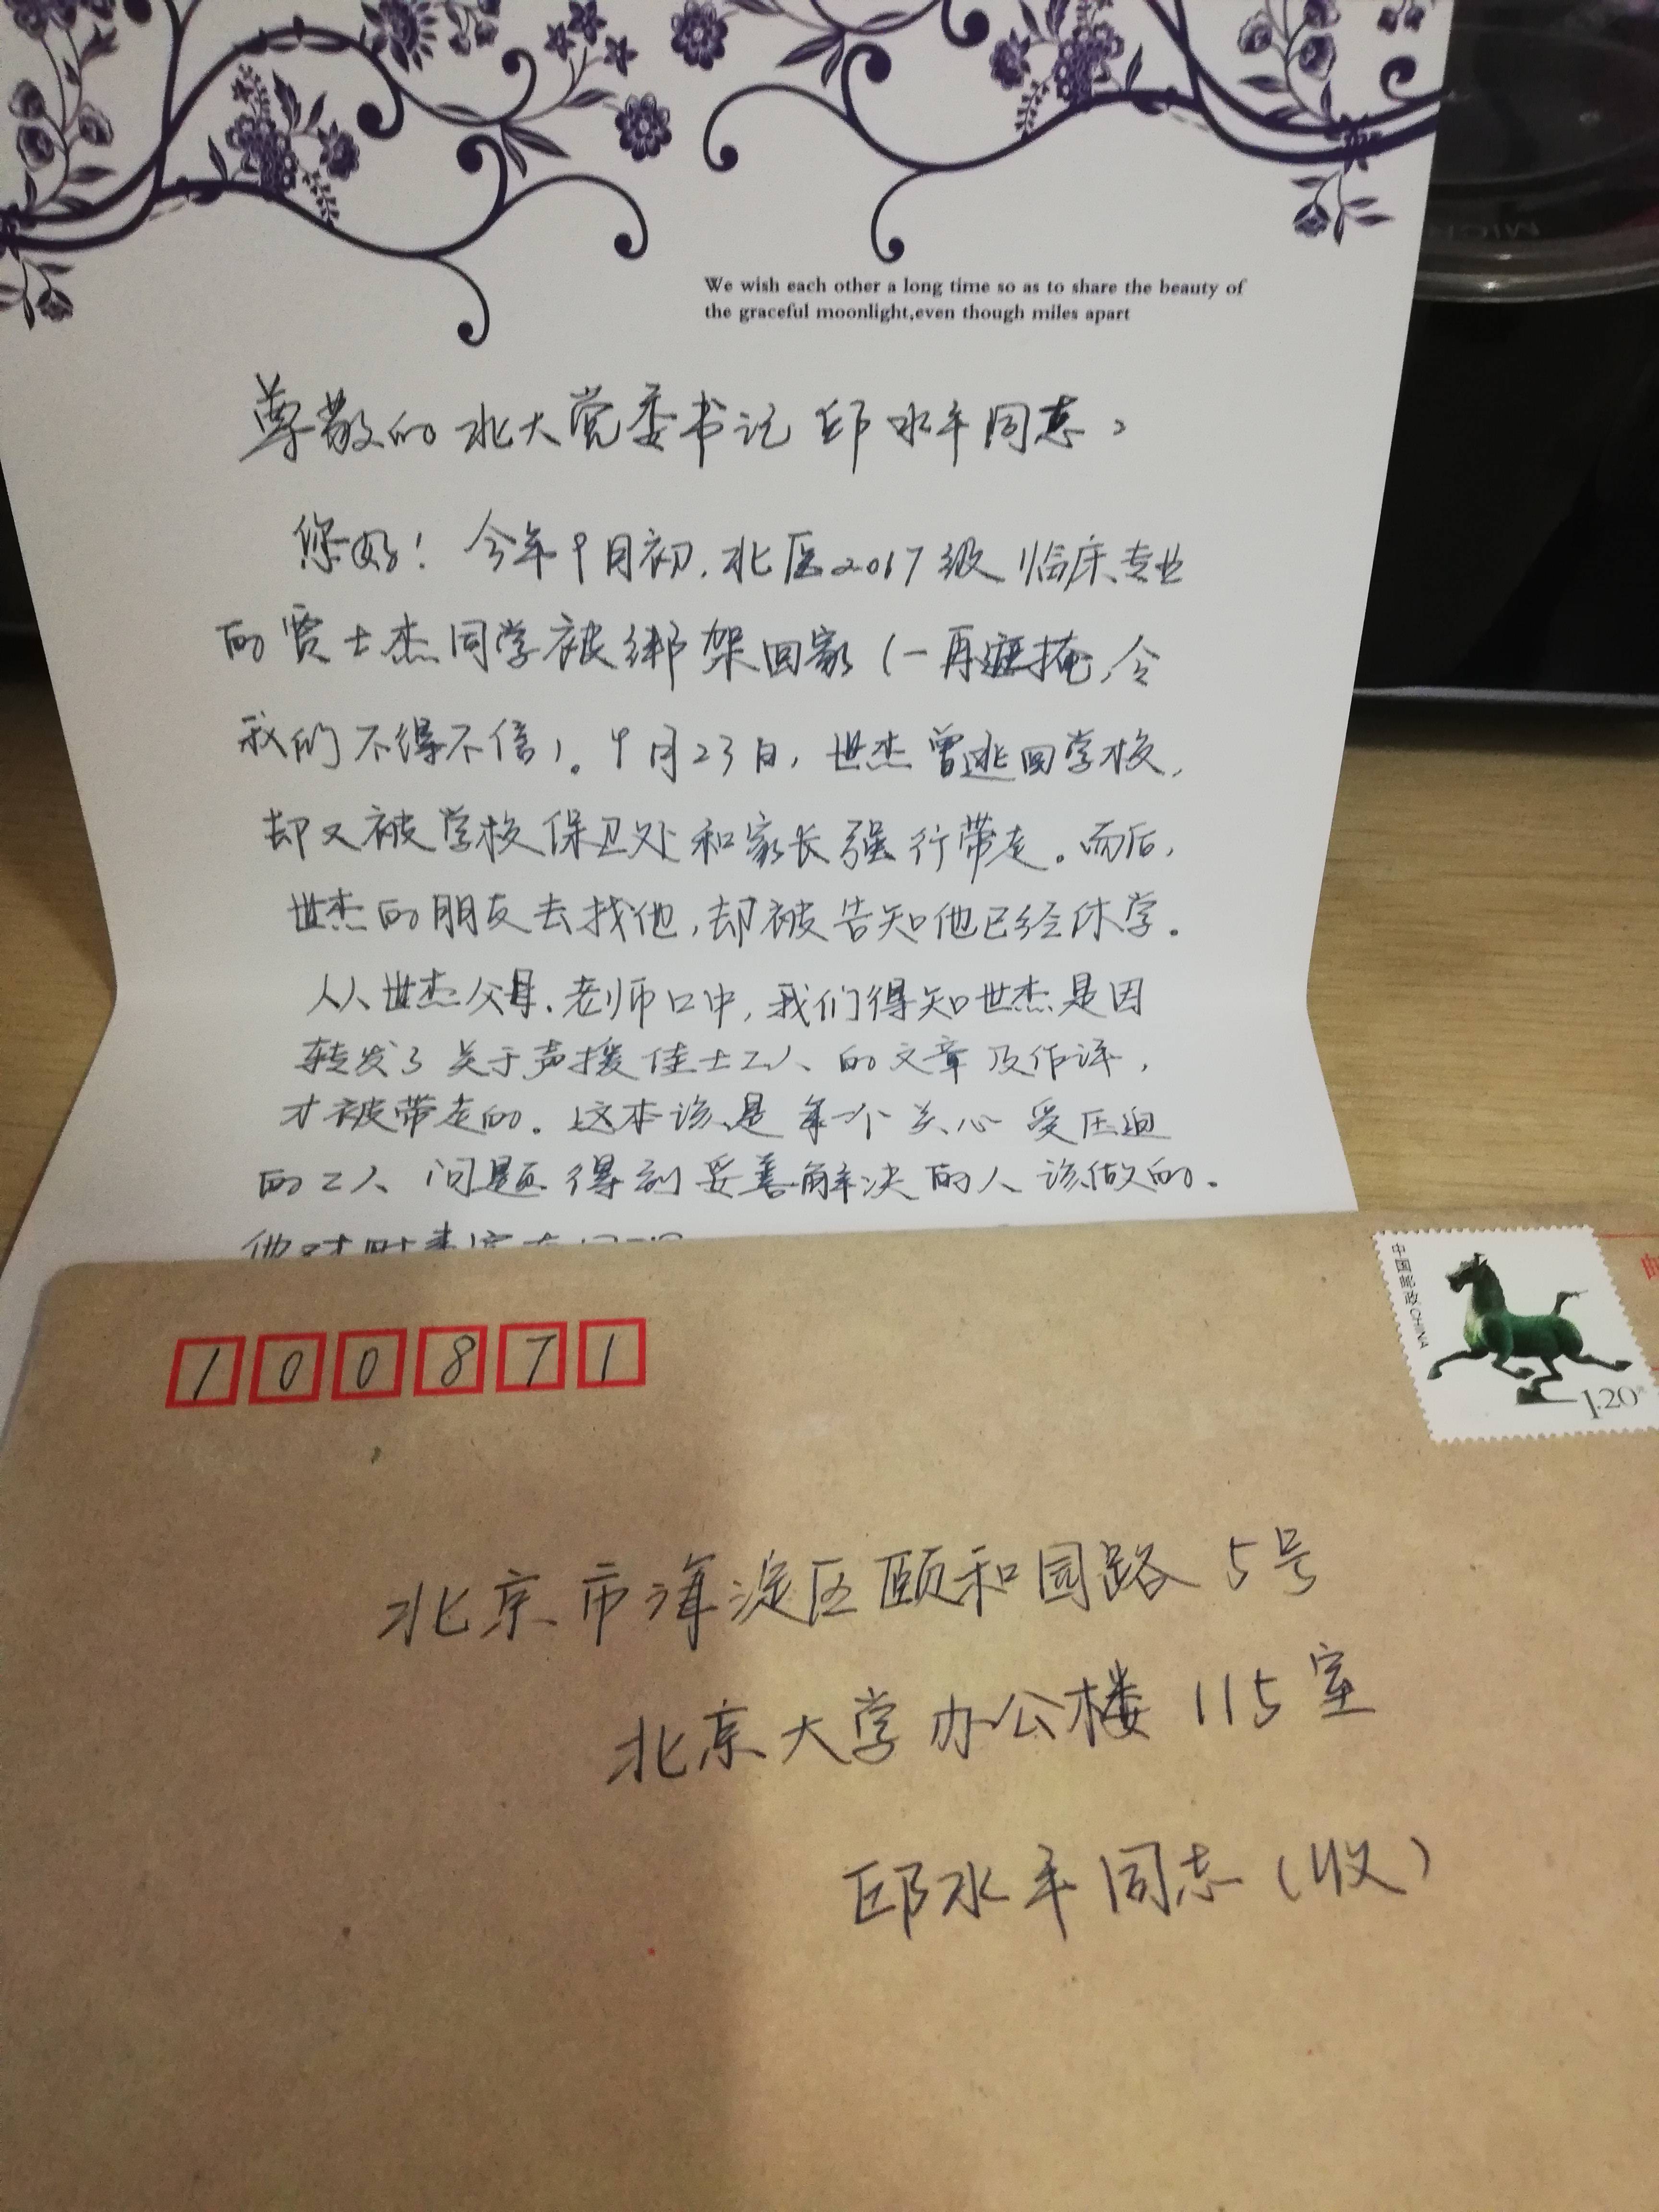 We wish each other a long time so as to share the beauty of
the graceful moonlight,even though miles apart
尊敬的北大党委书记邱水平同志：
您好！今年9月初，北医2017级临床专业
的贾士杰同学被绑架回家（一再遮掩，令
我们不得不信）。9月23日，世杰曾逃回学校，
却又被学校保卫处和家长强行带走。而后，
世杰的朋友去找他，却被告知他已经休学。
从世杰父母、老师口中，我们得知世杰是因
转发了关于声援佳士工人的文章及作评，
才被带走的。这本该是每个关心受压迫
的工人问题得到妥善解决的人该做的。
他对时事
100871
中国邮政CHINA
1.20元
北京市海淀区颐和园路5号
北京大学办公楼115室
邱水平同志（收）